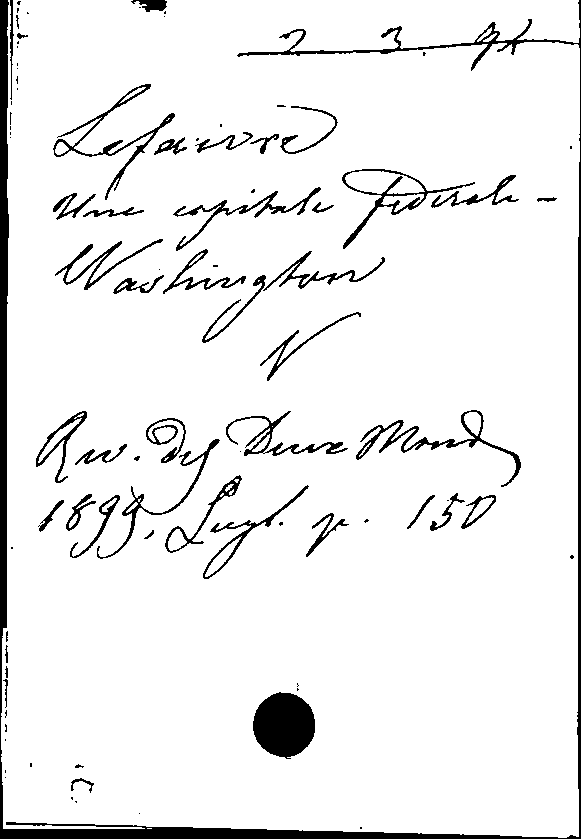 2. 3. 94
Lefaivre
Une capitale fédérale -
Washington
V
Rev. des Deux Mondes
1899, Lugl. p. 150